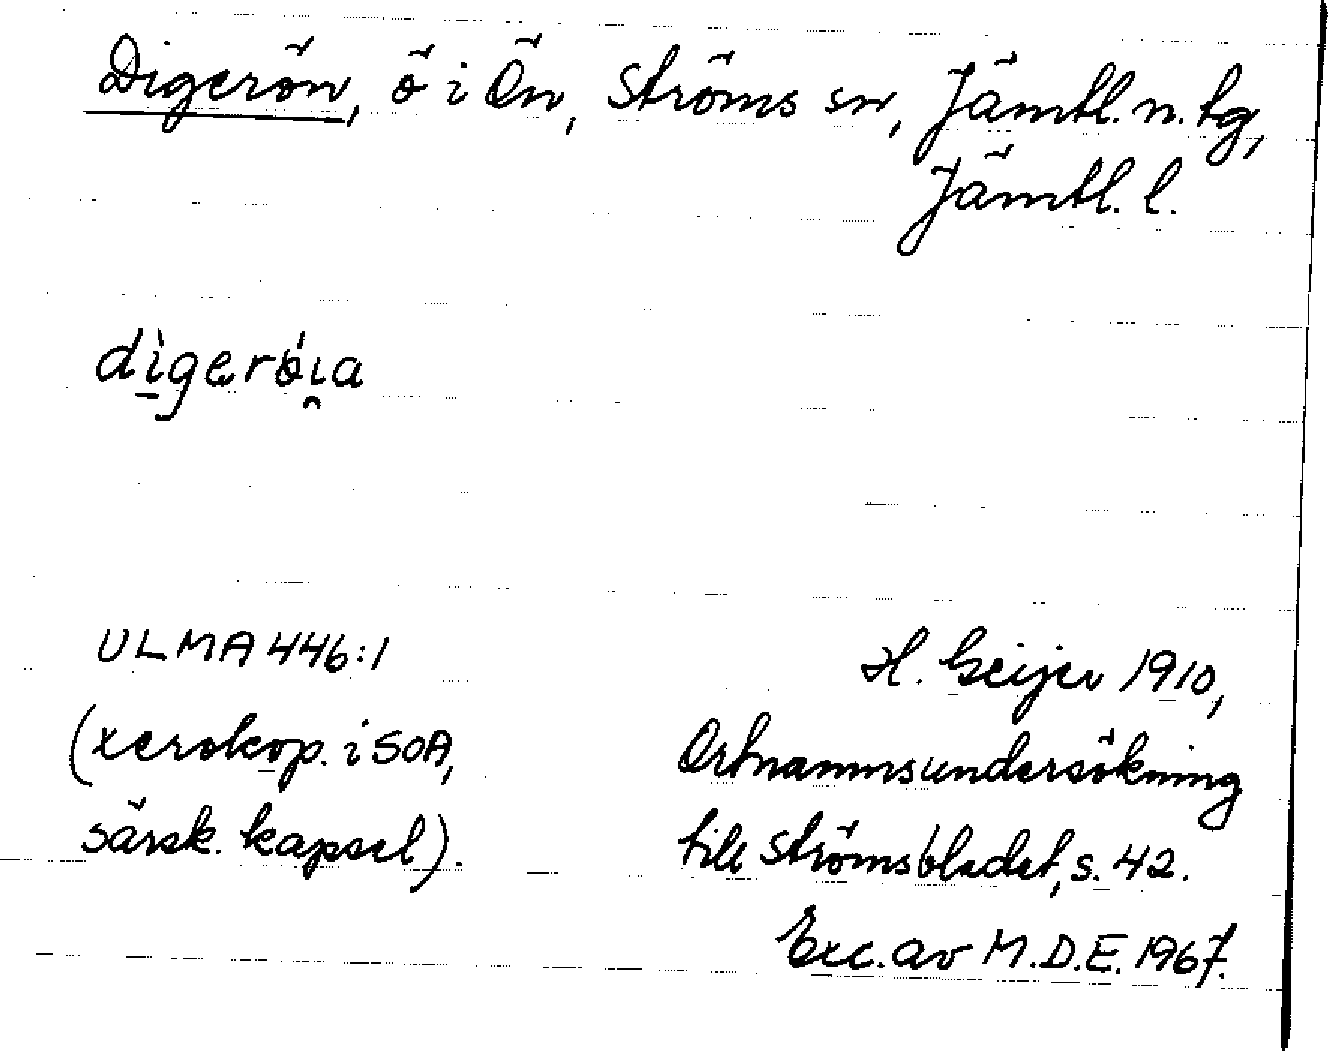 Digerön, ö i Ön, Ströms sn, Jämtl. n. tg,
Jämtl. l.
ULMA 446:1
(xerokop. i SOA,
särsk. kapsel).
H. Geijer 1910,
Ortnamnsundersökning
till Strömsbladet, s. 42.
Exc. av M.D.E. 1967.